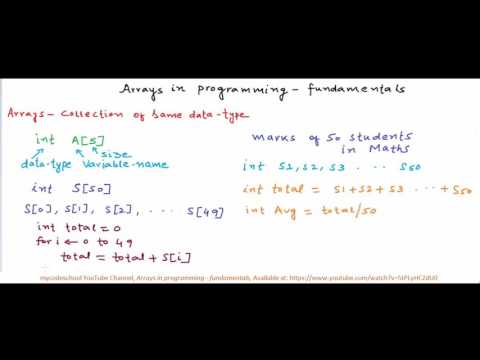 Arrays in programming - fundamentals
Arrays - Collection of same data-type
int A[5]
size
data-type Variable-name
int S[50]
S[0], S[1], S[2], ... S[49]
int total = 0
for i ← 0 to 49
total = total + S[i]
marks of 50 students
in Maths
int S1, S2, S3 ... S50
int total = S1+S2+S3 ... + S50
int Avg = total/50
mycodeschool YouTube Channel, Arrays in programming - fundamentals, Available at: